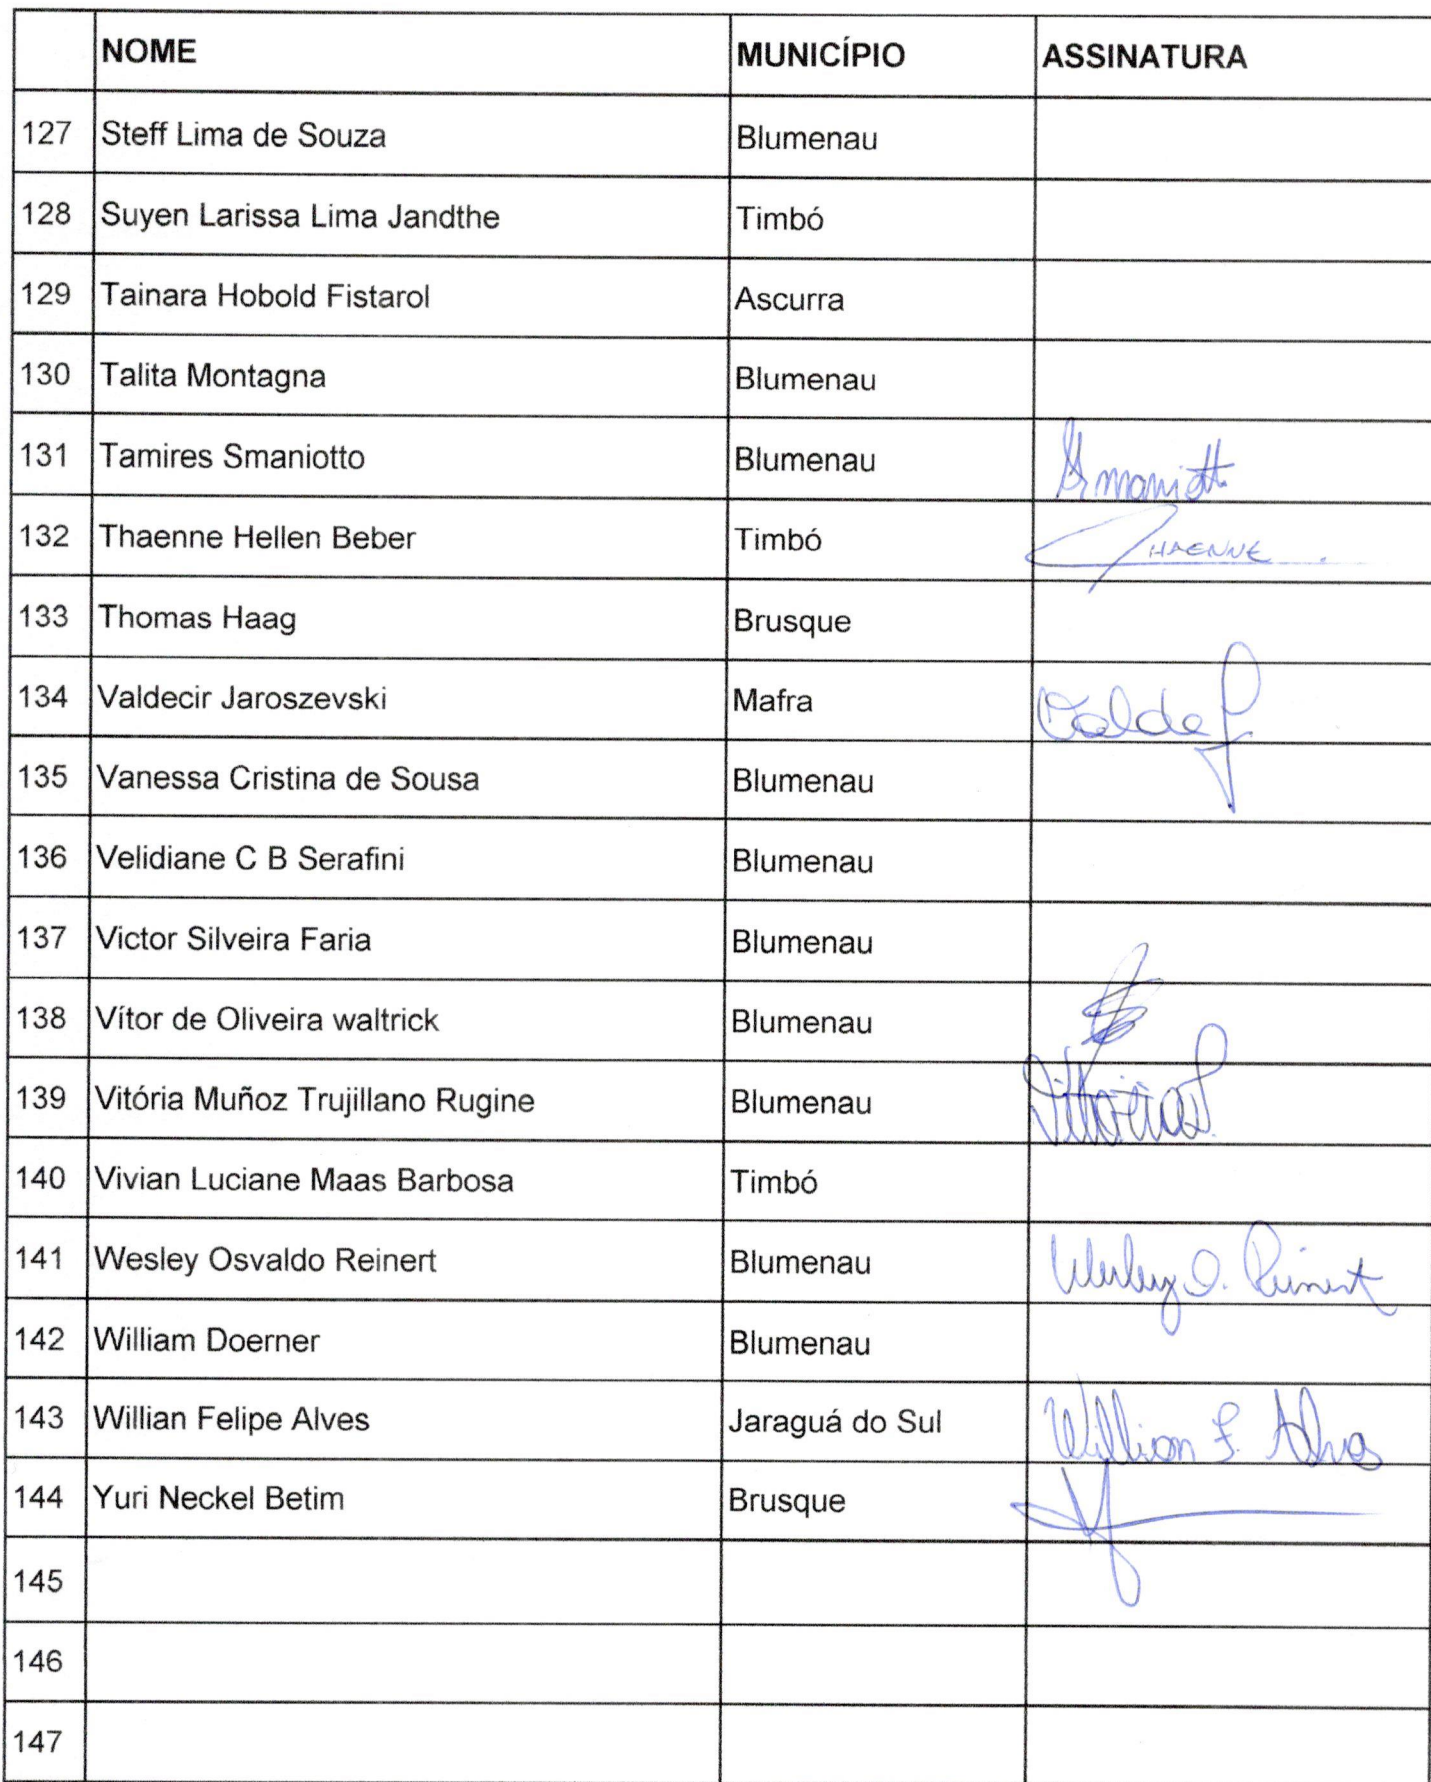 NOME MUNICÍPIO ASSINATURA
127 Steff Lima de Souza Blumenau
128 Suyen Larissa Lima Jandthe Timbó
129 Tainara Hobold Fistarol Ascurra
130 Talita Montagna Blumenau
131 Tamires Smaniotto Blumenau
132 Thaenne Hellen Beber Timbó THAENNE
133 Thomas Haag Brusque
134 Valdecir Jaroszevski Mafra
135 Vanessa Cristina de Sousa Blumenau
136 Velidiane C B Serafini Blumenau
137 Victor Silveira Faria Blumenau
138 Vítor de Oliveira waltrick Blumenau
139 Vitória Muñoz Trujillano Rugine Blumenau
140 Vivian Luciane Maas Barbosa Timbó
141 Wesley Osvaldo Reinert Blumenau Wesley O. Reinert
142 William Doerner Blumenau
143 Willian Felipe Alves Jaraguá do Sul Willian F. Alves
144 Yuri Neckel Betim Brusque
145
146
147